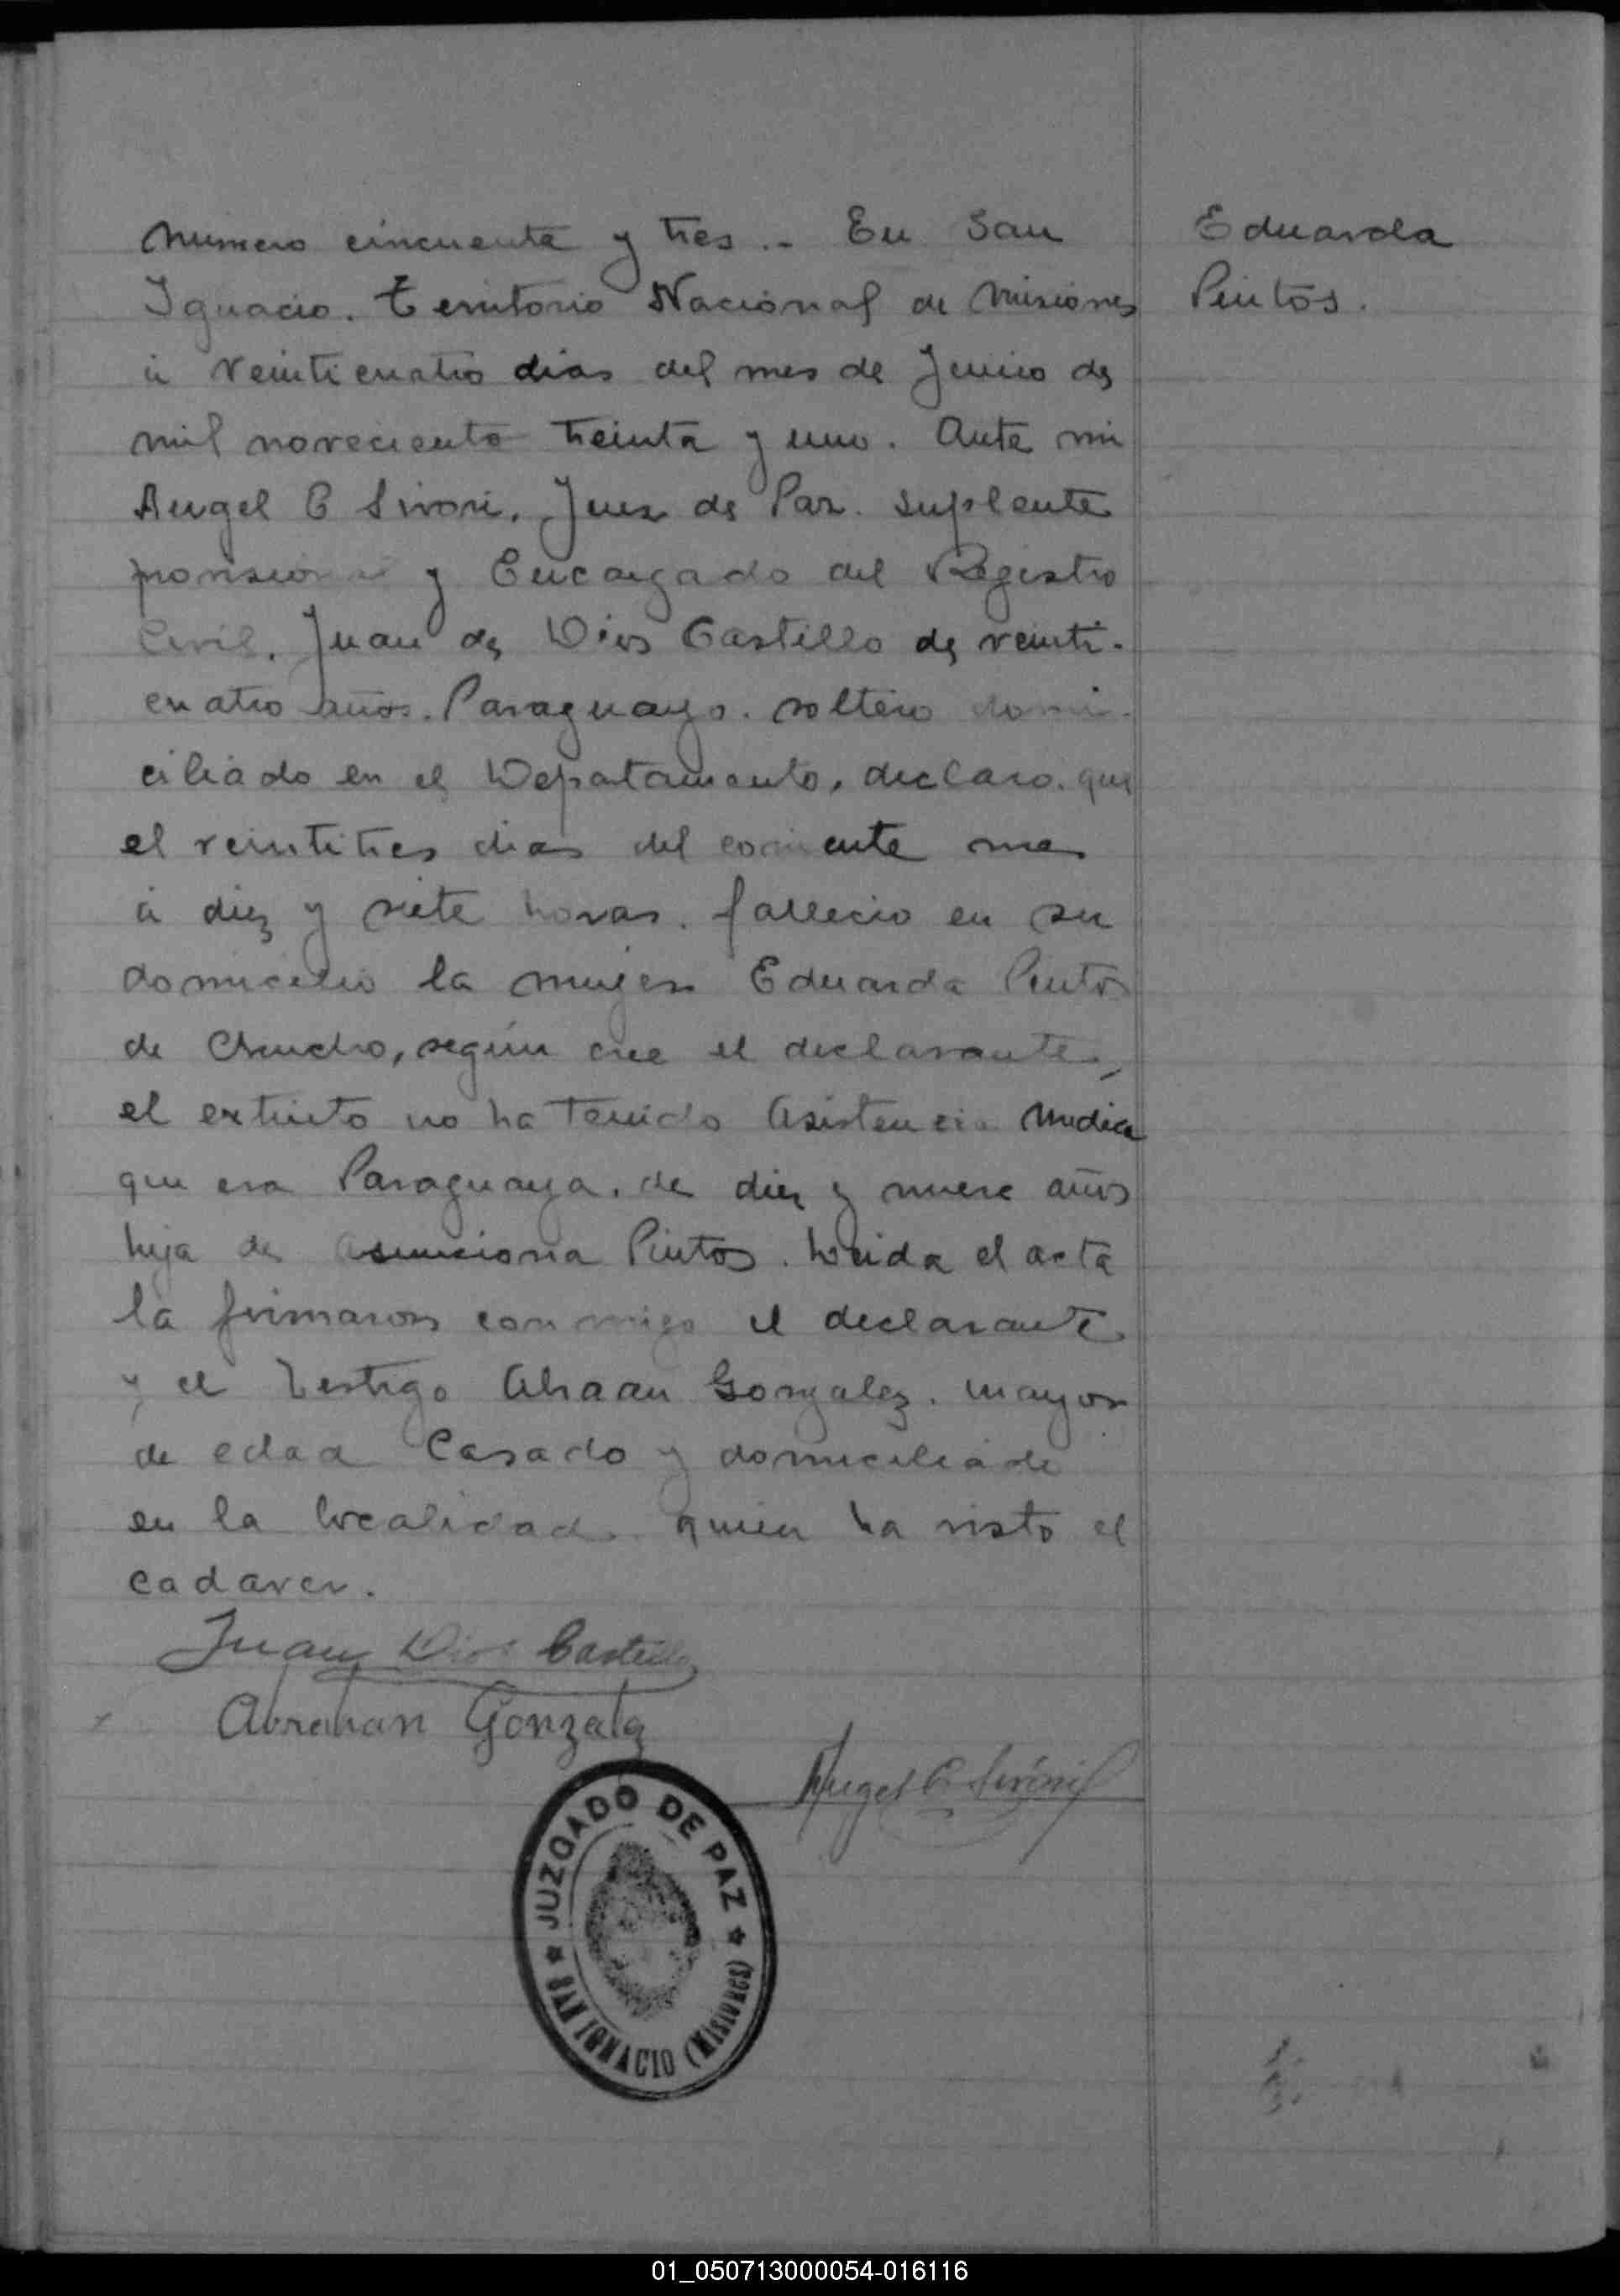 Numero cincuenta y tres .- En San
Ignacio. Territorio Nacional de Misiones
á veinticuatro dias del mes de Junio de
mil noveciento treinta y uno. Ante mi
Angel C Sivori. Juez de Paz. suplente
provisional y Encargado del Registro
Civil. Juan de Dios Castillo de veinti-
cuatro años. Paraguayo. soltero domi-
ciliado en el Departamento, declaro. que
el veintitres dias del corriente mes
á diez y siete horas. fallecio en su
domicilio la mujer Eduarda Pintos
de , según cree el declarante,
el extinto no ha tenido Asistencia Medica
que era Paraguaya. de diez y nueve años
hija de Asunciona Pintos. Leida el acta
la firmaron conmigo el declarante
y el testigo Gonzalez. mayor
de edad Casado y domiciliado
en la localidad quien ha visto el
cadaver.
Eduarda
Pintos.
Juan Dios Castillo
Abrahan Gonzalez
Angel C. Sivori
JUZGADO DE PAZ
SAN IGNACIO (MISIONES)
01_050713000054-016116